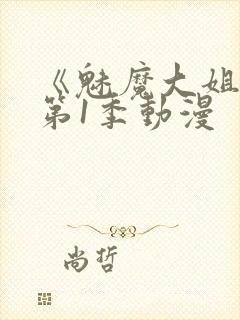 《魅魔大姐
第1季動漫
尚哲